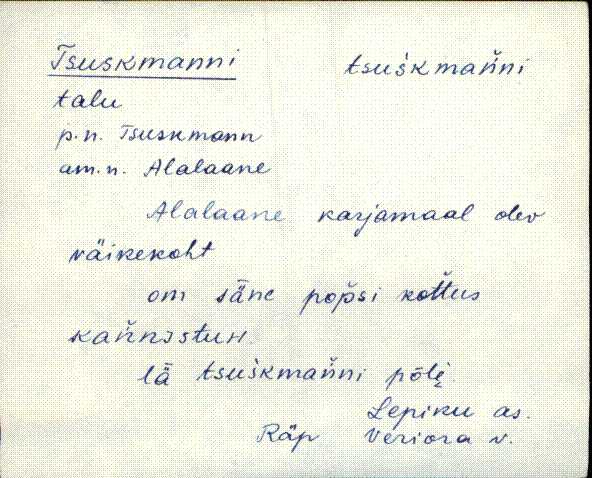 Tsuskmanni tsuśkmańni
talu
p.n. Tsuskmann
am.n. Alalaane
Alalaane karjamaal olev
väikekoht
om säne pop̌si kottus
kańnistuн.
lä tsuśkmańni põlį.
Lepiku as.
Räp Veriora v.